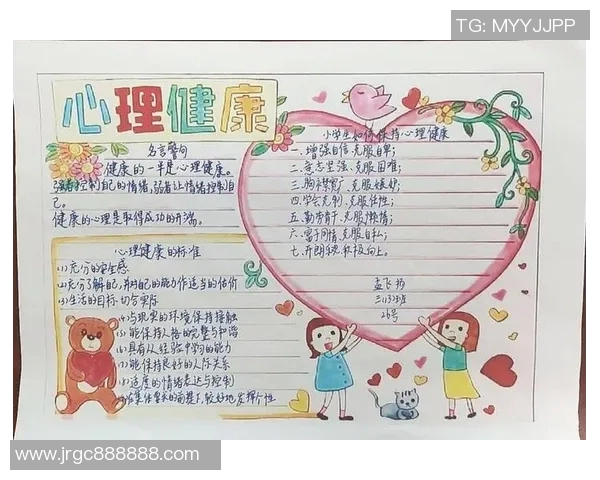 TG: MYYJJPP
心理健康
名言警句
健康的一半是心理健康。
强者控制自己的情绪,弱者让情绪控制自
己。
健康的心理是取得成功的开端。
心理健康的标准
(1)充分的安全感
(2)充分了解自己,并对自己的能力作适当的估价
(3)生活的目标切合实际
(4)与现实的环境保持接触
(5)能保持人格的完整与和谐
(6)具有从经验中学习的能力
(7)能保持良好的人际关系
(8)适度的情绪表达与控制
在集体要求的前提下,较好地发挥个性
小学生如何保持心理健康
一、增强自信,克服自卑;
二、意志坚强,克服困难;
三、胸襟宽广,克服嫉妒;
四、学会克制,克服任性;
五、勤劳肯干,克服懒惰;
六、富于同情,克服自私;
七、开朗乐观,积极向上。
三(13)班
26号
www.jrgc888888.com